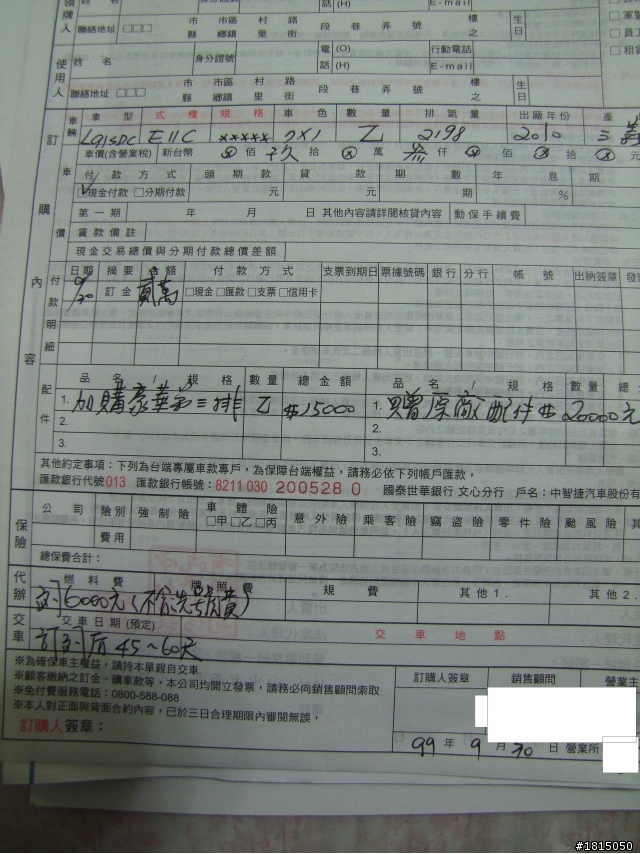 領牌人
聯絡地址 □□□ 市縣 市區鄉鎮 村里 路街 段 巷 弄 號 樓之 生日
使用人 姓名 身分證號 電話 (O) (H) 行動電話 E-mail
聯絡地址 □□□ 市縣 市區鄉鎮 村里 路街 段 巷 弄 號 樓之 生日
訂購內容
車輛 車型 式樣 規格 車色 數量 排氣量 出廠年份 產
E11C ××××× 乙 2198 2010 三義
車價(含營業稅) 新台幣 佰 玖 拾 萬 叁 仟 佰 拾 元
車價 付款方式 頭期款 貸款 期數 年息 期
☑現金付款 □分期付款 元 元 期 %
第一期 年 月 日 其他內容請詳閱核貸內容 動保手續費
貸款備註
現金交易總價與分期付款總價差額
付款明細 日期 摘要 金額 付款方式 支票到期日 票據號碼 銀行 分行 帳號 出納簽章 發票
9/30 訂金 貳萬 □現金 □匯款 □支票 □信用卡
配件 品名/規格 數量 總金額 品名/規格 數量 總
1. 加購豪華第三排 乙 $15000 1. 贈原廠配件$20000元
2. 2.
3. 3.
其他約定事項：下列為台端專屬車款專戶，為保障台端權益，請務必依下列帳戶匯款，
匯款銀行代號013 匯款銀行帳號：8211 030 200528 0 國泰世華銀行 文心分行 戶名：中智捷汽車股份有
保險 公司 險別 強制險 車體險 □甲□乙□丙 意外險 乘客險 竊盜險 零件險 颱風險 其
費用
總保費合計：
代辦 燃料費 牌照費 規費 其他1. 其他2.
6000元(不含選號費)
交車 交車日期(預定) 交車地點
后45~60天
※為確保車主權益，請持本單親自交車
※顧客繳納之訂金、購車款等，本公司均開立發票，請務必向銷售顧問索取
※免付費服務電話：0800-588-088
※本人對正面與背面合約內容，已於三日合理期限內審閱無誤，
訂購人簽章：
訂購人簽章 銷售顧問 營業主
99年9月30日 營業所
#1815050